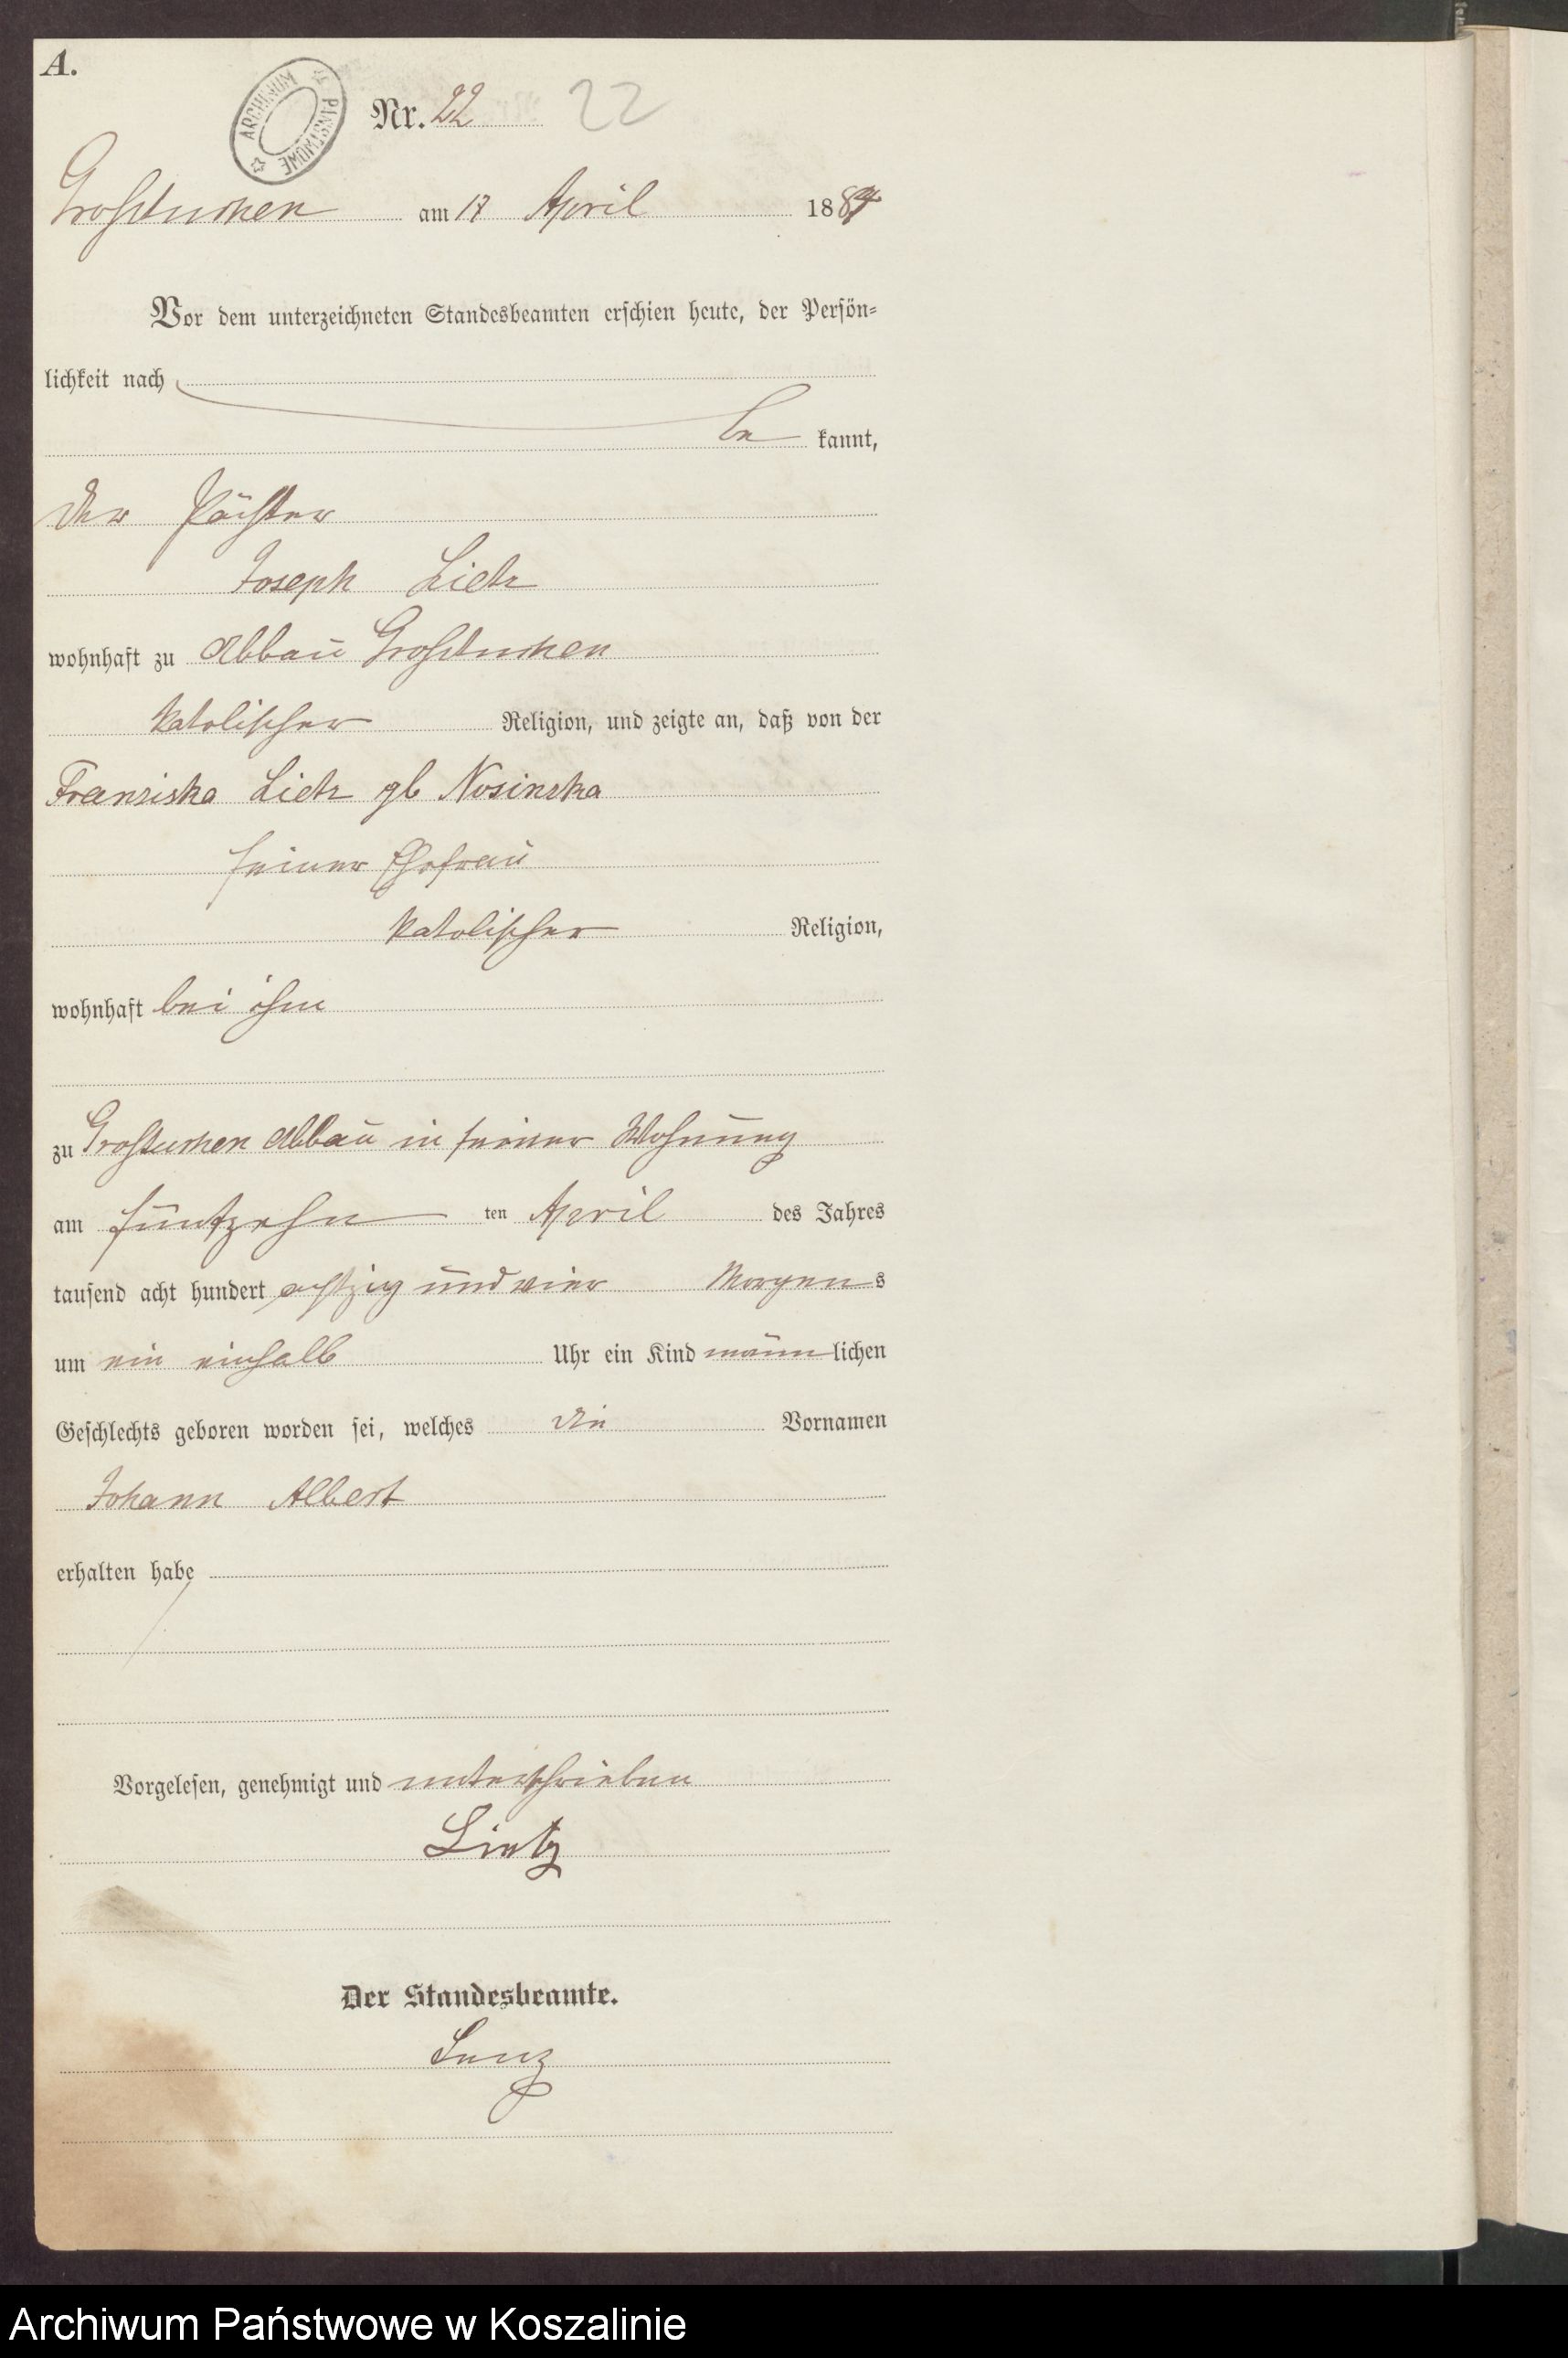 A.
ARCHIWUM PAŃSTWOWE
Nr. 22 22
Großtuchen am 17 April 1884
Vor dem unterzeichneten Standesbeamten erschien heute, der Persön-
lichkeit nach
be kannt,
der Pächter
Joseph Lietz
wohnhaft zu Abbau Großtuchen
katolischer Religion, und zeigte an, daß von der
Franziska Lietz gb Nosinska
seiner Ehefrau
katolischer Religion,
wohnhaft bei ihm
zu Großtuchen Abbau in seiner Wohnung
am fünfzehn ten April des Jahres
tausend acht hundert achtzig und vier Morgens
um ein einhalb Uhr ein Kind männlichen
Geschlechts geboren worden sei, welches die Vornamen
Johann Albert
erhalten habe
Vorgelesen, genehmigt und unterschrieben
Lietz
Der Standesbeamte.
Archiwum Państwowe w Koszalinie